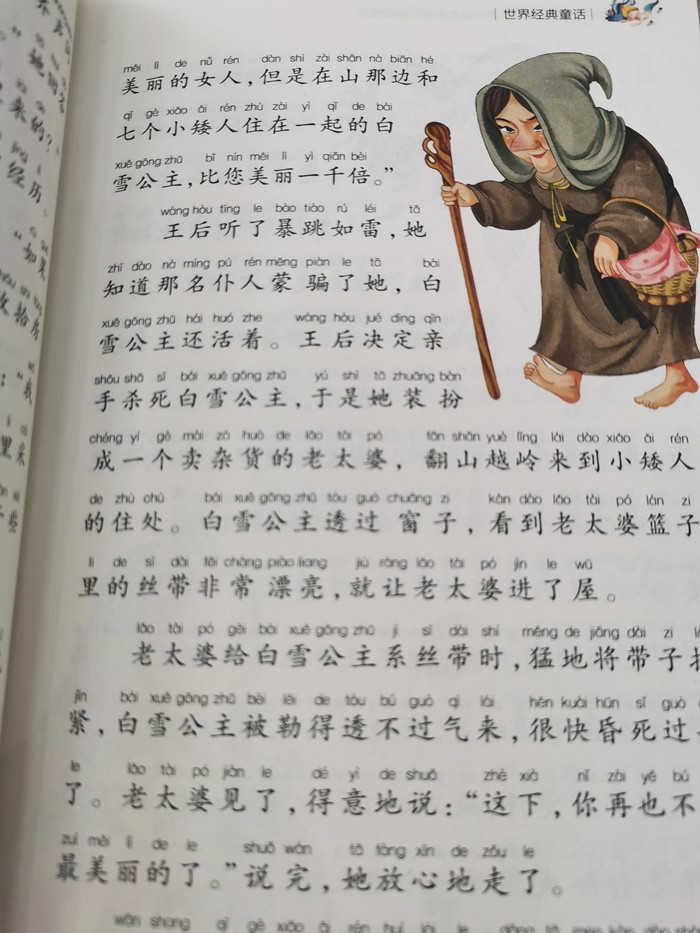 世界经典童话
měi lì de nǚ rén dàn shì zài shān nà biān hé
美丽的女人,但是在山那边和
qī gè xiǎo ǎi rén zhù zài yì qǐ de bái
七个小矮人住在一起的白
xuě gōng zhǔ bǐ nín měi lì yì qiān bèi
雪公主,比您美丽一千倍。”
wáng hòu tīng le bào tiào rú léi tā
王后听了暴跳如雷,她
zhī dào nà míng pú rén mēng piàn le tā bái
知道那名仆人蒙骗了她,白
xuě gōng zhǔ hái huó zhe wáng hòu jué dìng qīn
雪公主还活着。王后决定亲
shǒu shā sǐ bái xuě gōng zhǔ yú shì tā zhuāng bàn
手杀死白雪公主,于是她装扮
chéng yí gè mài zá huò de lǎo tài pó fān shān yuè lǐng lái dào xiǎo ǎi rén
成一个卖杂货的老太婆,翻山越岭来到小矮人
de zhù chù bái xuě gōng zhǔ tòu guò chuāng zi kàn dào lǎo tài pó lán zi
的住处。白雪公主透过窗子,看到老太婆篮子
li de sī dài fēi cháng piào liang jiù ràng lǎo tài pó jìn le wū
里的丝带非常漂亮,就让老太婆进了屋。
lǎo tài pó gěi bái xuě gōng zhǔ jì sī dài shí měng de jiāng dài zi
老太婆给白雪公主系丝带时,猛地将带子
jǐn bái xuě gōng zhǔ bèi lēi de tòu bú guò qì lái hěn kuài hūn sǐ guò
紧,白雪公主被勒得透不过气来,很快昏死过
le lǎo tài pó jiàn le dé yì de shuō zhè xià nǐ zài yě bú
了。老太婆见了,得意地说:“这下,你再也不
zuì měi lì de le shuō wán tā fàng xīn de zǒu le
最美丽的了。”说完,她放心地走了。
wǎn shang qī gè xiǎo ǎi rén huí lái le